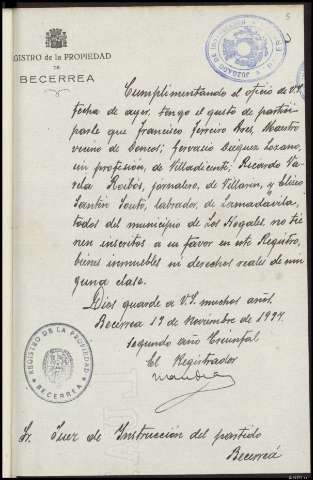 5
REGISTRO DE LA PROPIEDAD
DE
BECERREA
Cumplimentando el oficio de V.S.
fecha de ayer, tengo el gusto de partici-
parle que Francisco Ferreiro Arel, Maestro
vecino de Doncos; Gervasio Lozano,
sin profesión, de Villadicente; Ricardo Va-
rela Rubos, jornalero, de Villaren, y Eliseo
Santin Souto, labrador, de Lamadavila,
todos del municipio de Los Nogales, no tie-
nen inscritos a su favor en este Registro,
bienes inmuebles ni derechos reales de nin-
guna clase.
Dios guarde a V.S. muchos años.
Becerrea 19 de Noviembre de 1937.
segundo año Triunfal
El Registrador
REGISTRO DE LA PROPIEDAD
BECERREA
Sr. Juez de Instrucción del partido
Becerreá